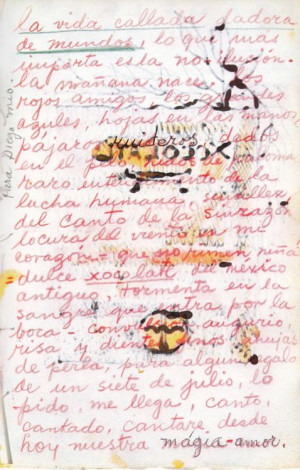 la vida callada dadora
de mundos, lo que mas
importa es la no ilusión.
la mañana nace, los
rojos amigos, los
azules, hojas en las manos,
pájaros
en el pelo, de paloma
raro entendimiento de la
lucha humana, sencillez
del canto de la sinrazón
locura del viento en mi
corazón = que no rimen niña
= dulce xocolatl de mexico
antiguo, tormenta en la
sangre que entra por la
boca - augurio,
risa y dientes agujas
de perla, para algun regalo
de un siete de julio, lo
pido, me llega, canto,
cantado, cantaré, desde
hoy nuestra magia - amor.
Para Diego mio.